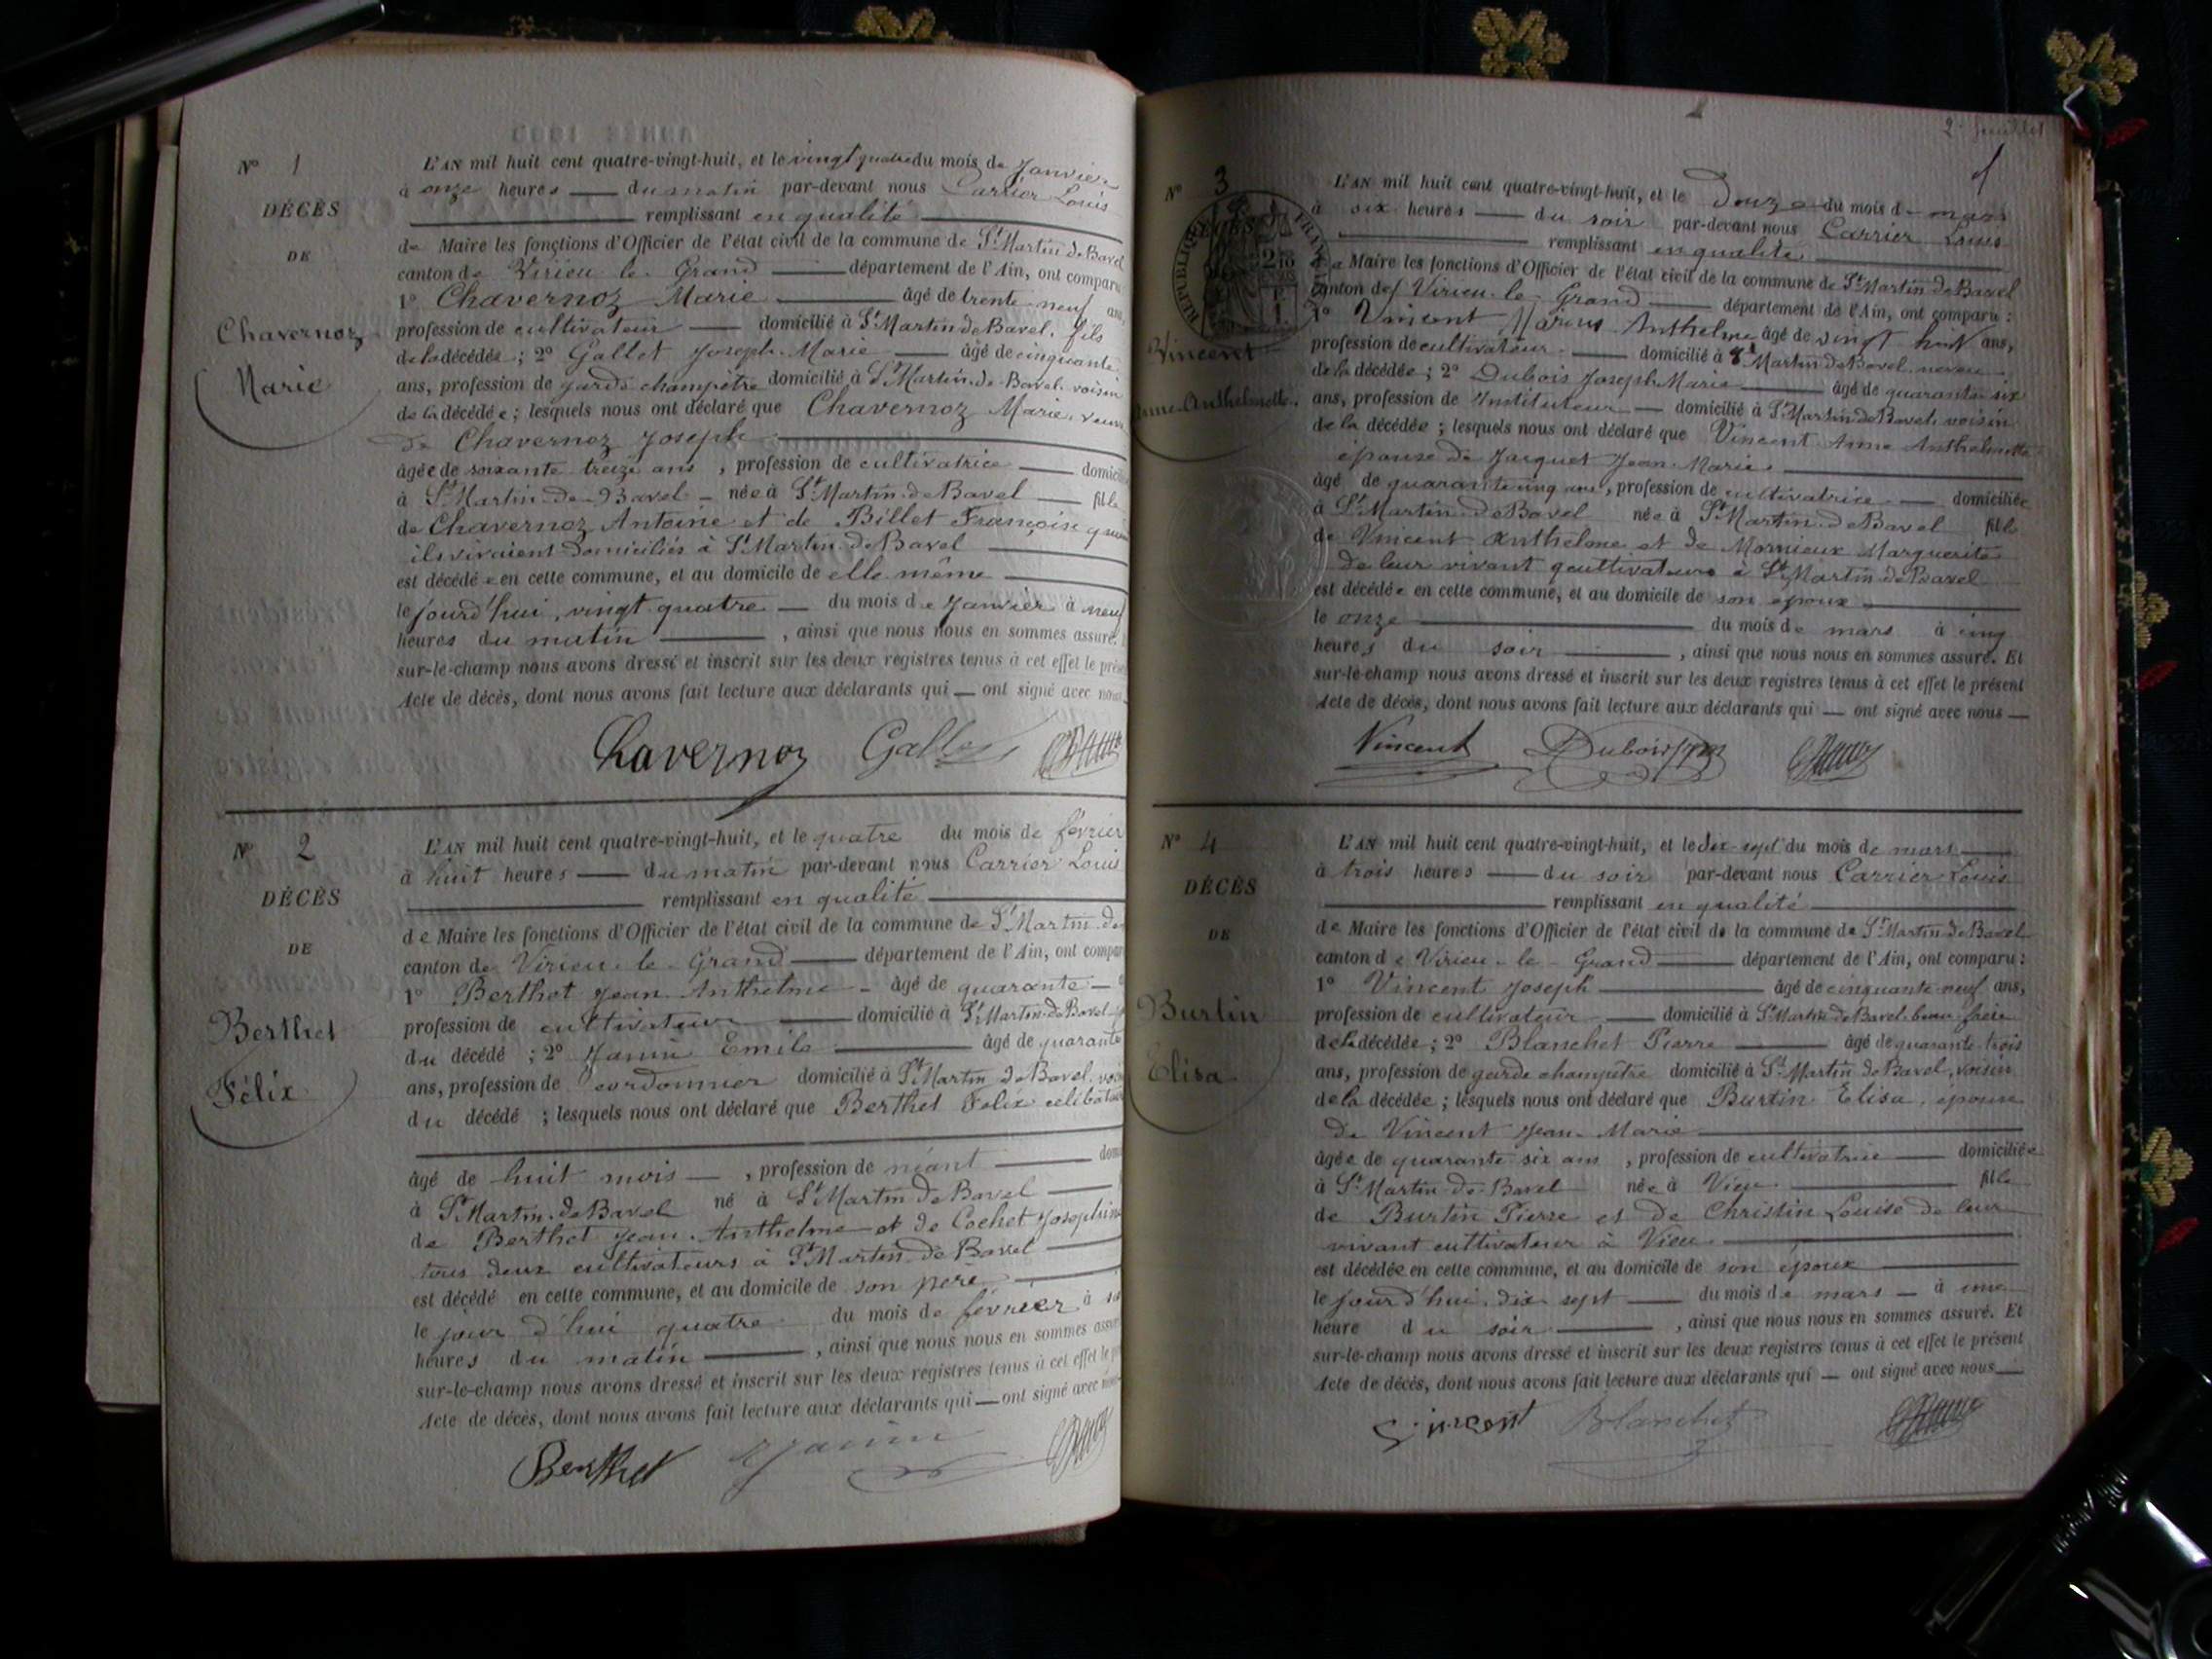 N° 1
DÉCÈS
DE
Chavernoz
Marie
L'AN mil huit cent quatre-vingt-huit, et le vingt quatre du mois de Janvier
à onze heures du matin par-devant nous Carrier Louis
remplissant en qualité
de Maire les fonctions d'Officier de l'état civil de la commune de St Martin de Bavel
canton de Virieu le Grand département de l'Ain, ont comparu
1° Chavernoz Marie âgé de trente neuf ans,
profession de cultivateur domicilié à St Martin de Bavel, fils
de la décédée ; 2° Gallet Joseph Marie âgé de cinquante
ans, profession de garde champêtre domicilié à St Martin de Bavel voisin
de la décédée ; lesquels nous ont déclaré que Chavernoz Marie, veuve
de Chavernoz Joseph
âgée de soixante treize ans , profession de cultivatrice domicil
à St Martin de Bavel née à St Martin de Bavel fille
de Chavernoz Antoine et de Billet Françoise
ils vivaient domiciliés à St Martin de Bavel
est décédée en cette commune, et au domicile de elle même
le jourd'hui, vingt quatre du mois de Janvier à neuf
heures du matin , ainsi que nous nous en sommes assuré.
sur-le-champ nous avons dressé et inscrit sur les deux registres tenus à cet effet le prés
Acte de décès, dont nous avons fait lecture aux déclarants qui ont signé avec nous
Chavernoz Gallet
N° 2
DÉCÈS
DE
Berthet
Félix
L'AN mil huit cent quatre-vingt-huit, et le quatre du mois de février
à huit heures du matin par-devant nous Carrier Louis
remplissant en qualité
de Maire les fonctions d'Officier de l'état civil de la commune de St Martin de
canton de Virieu le Grand département de l'Ain, ont compar
1° Berthet Jean Anthelme âgé de quarante
profession de cultivateur domicilié à St Martin de Bavel
du décédé ; 2° Janin Emile âgé de quarante
ans, profession de cordonnier domicilié à St Martin de Bavel voi
du décédé ; lesquels nous ont déclaré que Berthet Félix célibataire
âgé de huit mois , profession de néant dom
à St Martin de Bavel né à St Martin de Bavel
de Berthet Jean Anthelme et de Cochet Joséphine
tous deux cultivateurs à St Martin de Bavel
est décédé en cette commune, et au domicile de son père
le jour d'hui quatre du mois de février à
heures du matin , ainsi que nous nous en sommes assur
sur-le-champ nous avons dressé et inscrit sur les deux registres tenus à cet effet le
Acte de décès, dont nous avons fait lecture aux déclarants qui ont signé avec nous
Berthet Janin
2e feuillet
N° 3
RÉPUBLIQUE FRANÇ
Vincent
Anne Anthelmette
L'AN mil huit cent quatre-vingt-huit, et le Douze du mois de mars
à six heures du soir par-devant nous Carrier Louis
remplissant en qualité
de Maire les fonctions d'Officier de l'état civil de la commune de St Martin de Bavel
canton de Virieu le Grand département de l'Ain, ont comparu :
1° Vincent Marius Anthelme âgé de vingt huit ans,
profession de cultivateur domicilié à St Martin de Bavel neveu
de la décédée ; 2° Dubois Joseph Marie âgé de quarante six
ans, profession de Instituteur domicilié à St Martin de Bavel, voisin
de la décédée ; lesquels nous ont déclaré que Vincent Anne Anthelmette
épouse de Jacquet Jean Marie
âgé de quarante cinq ans, profession de cultivatrice domiciliée
à St Martin de Bavel née à St Martin de Bavel fille
de Vincent Anthelme et de Mornieux Marguerite
de leur vivant cultivateurs à St Martin de Bavel
est décédée en cette commune, et au domicile de son époux
le onze du mois de mars à cinq
heures du soir , ainsi que nous nous en sommes assuré. Et
sur-le-champ nous avons dressé et inscrit sur les deux registres tenus à cet effet le présent
Acte de décès, dont nous avons fait lecture aux déclarants qui ont signé avec nous
Vincent Dubois JM
N° 4
DÉCÈS
DE
Burtin
Elisa
L'AN mil huit cent quatre-vingt-huit, et le dix-sept du mois de mars
à trois heures du soir par-devant nous Carrier Louis
remplissant en qualité
de Maire les fonctions d'Officier de l'état civil de la commune de St Martin de Bavel
canton de Virieu le Grand département de l'Ain, ont comparu :
1° Vincent Joseph âgé de cinquante neuf ans,
profession de cultivateur domicilié à St Martin de Bavel beau frère
de la décédée ; 2° Blanchet Pierre âgé de quarante trois
ans, profession de garde champêtre domicilié à St Martin de Bavel, voisin
de la décédée ; lesquels nous ont déclaré que Burtin Elisa, épouse
de Vincent Jean Marie
âgée de quarante six ans , profession de cultivatrice domiciliée
à St Martin de Bavel née à Vieu fille
de Burtin Pierre et de Christin Louise de leur
vivant cultivateur à Vieu
est décédée en cette commune, et au domicile de son époux
le jourd'hui, dix sept du mois de mars à une
heure du soir , ainsi que nous nous en sommes assuré. Et
sur-le-champ nous avons dressé et inscrit sur les deux registres tenus à cet effet le présent
Acte de décès, dont nous avons fait lecture aux déclarants qui ont signé avec nous
Vincent Blanchet